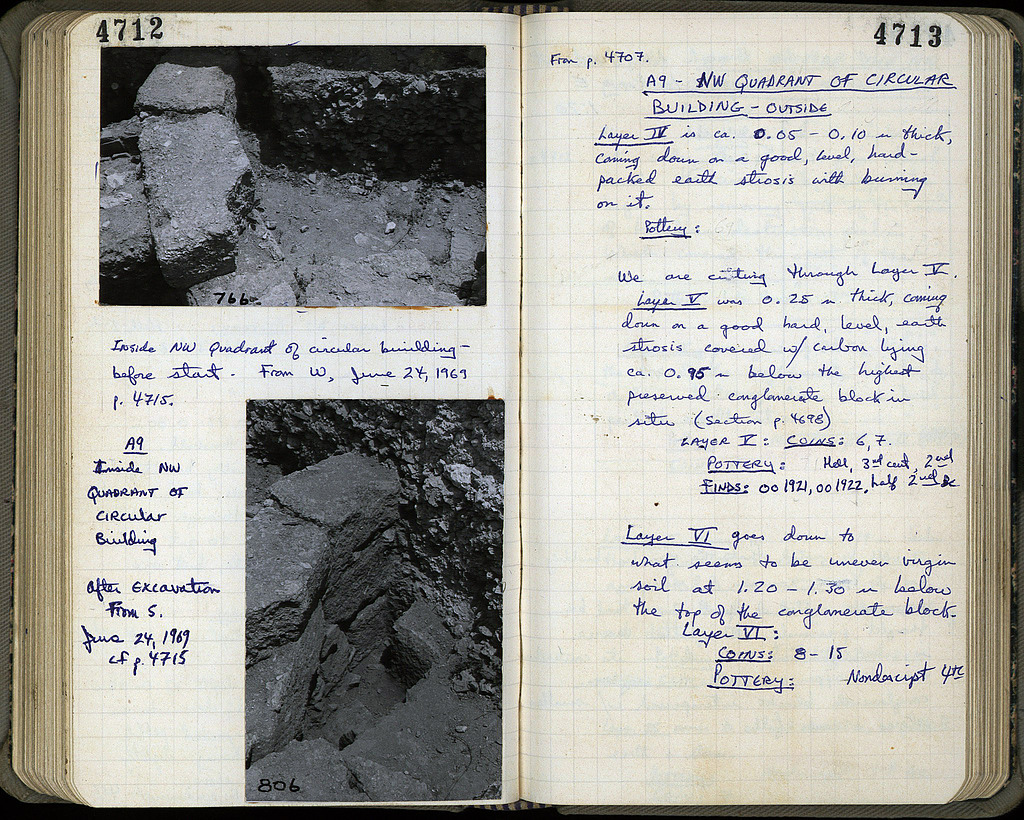 4712
766
Inside NW Quadrant of circular building -
before start. From W, June 24, 1969
p. 4715.
A9
Inside NW
QUADRANT OF
CIRCULAR
Building
After EXCAVATION
From S.
June 24, 1969
cf p. 4715
806
4713
From p. 4707.
A9 - NW QUADRANT OF CIRCULAR
BUILDING - OUTSIDE
Layer IV is ca. 0.05 - 0.10 m thick,
coming down on a good, level, hard-
packed earth strosis with burning
on it.
Pottery:
We are cutting through Layer V.
Layer V was 0.25 m thick, coming
down on a good hard, level, earth
strosis covered w/ carbon lying
ca. 0.95 m below the highest
preserved conglomerate block in
situ (section p. 4698)
LAYER V: COINS: 6, 7.
POTTERY: Hell, 3rd cent, 2nd
FINDS: OO 1921, OO 1922, half 2nd BC
Layer VI goes down to
what seems to be uneven virgin
soil at 1.20 - 1.30 m below
the top of the conglomerate block.
Layer VI:
COINS: 8 - 15
POTTERY: Nondescript 4th